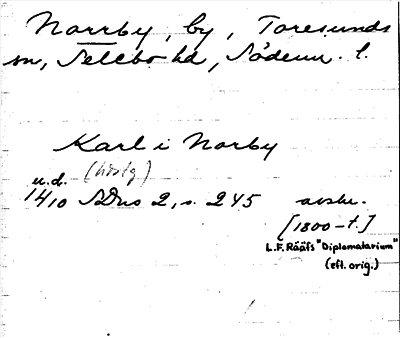 Norrby, by, Toresunds
sn, Selebo hd, Söderm. l.
Karl i Norby
u.d. (höstg)
1410 SDns 2, s. 245 avskr.
[1800-t.]
L.F. Rääfs "Diplomatarium"
(efl. orig.)